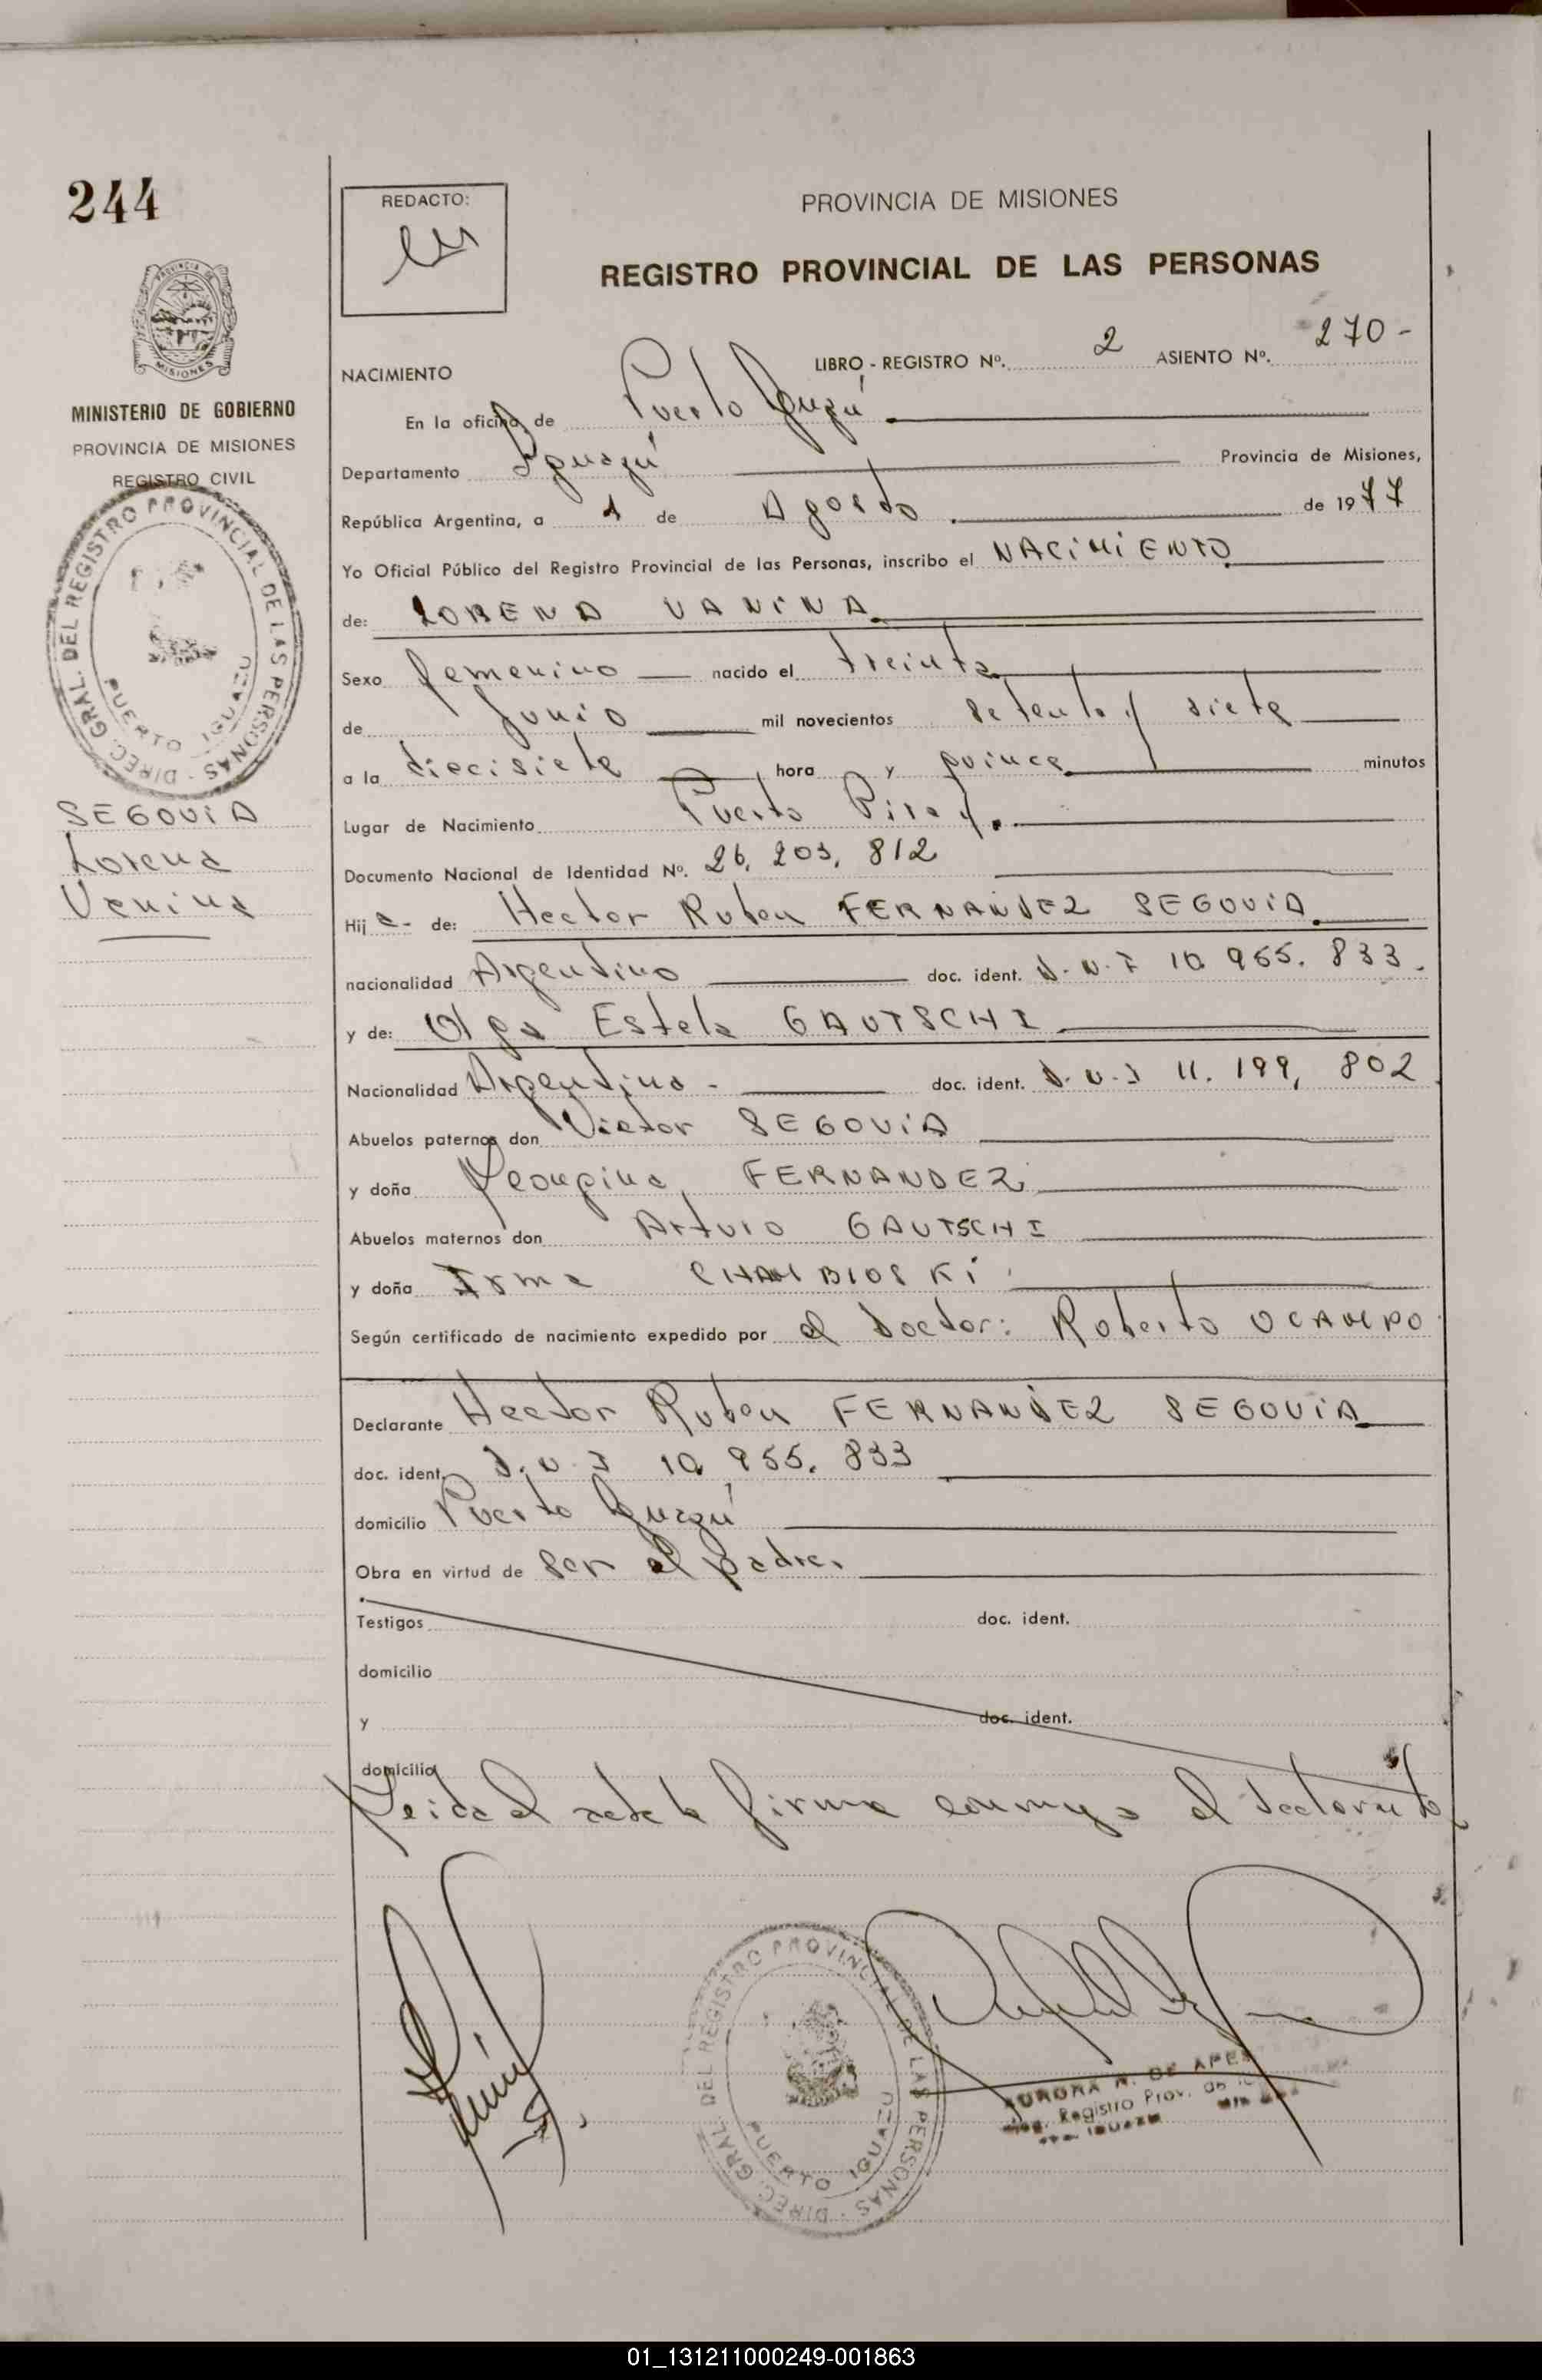 244
REDACTO:
PROVINCIA DE MISIONES
REGISTRO PROVINCIAL DE LAS PERSONAS
MISIONES
MINISTERIO DE GOBIERNO
PROVINCIA DE MISIONES
REGISTRO CIVIL
DIREC. GRAL. DEL REGISTRO PROVINCIAL DE LAS PERSONAS
PUERTO IGUAZU
SEGOVIA
Lorena
Vanina
NACIMIENTO LIBRO - REGISTRO Nº. 2 ASIENTO Nº. 270 -
En la oficina de Puerto Iguazú
Departamento Iguazú Provincia de Misiones,
República Argentina, a 1 de Agosto de 1977
Yo Oficial Público del Registro Provincial de las Personas, inscribo el NACIMIENTO
de: LORENA VANINA
Sexo femenino nacido el treinta
de Junio mil novecientos setenta y siete
a la diecisiete hora y quince minutos
Lugar de Nacimiento Puerto Piray.
Documento Nacional de Identidad Nº. 26.203.812
Hij a- de: Hector Ruben FERNANDEZ SEGOVIA
nacionalidad Argentino doc. ident. D.N.I 10.955.833.
y de: Olga Estela GAUTSCHI
Nacionalidad Argentina - doc. ident. D.N.I 11.199,802
Abuelos paternos don Victor SEGOVIA
y doña FERNANDEZ
Abuelos maternos don Arturo GAUTSCHI
y doña Irma
Según certificado de nacimiento expedido por el Doctor: Roberto OCAMPO
Declarante Hector Ruben FERNANDEZ SEGOVIA
doc. ident. D.N.I 10.955.833
domicilio Puerto Iguazú
Obra en virtud de ser el padre.
Testigos doc. ident.
domicilio
y doc. ident.
domicilio
Leida el acta la firma conmigo el declarante
DIREC. GRAL. DEL REGISTRO PROVINCIAL DE LAS PERSONAS
PUERTO IGUAZU
AURORA DE
Registro Prov. de
IGUAZU
01_131211000249-001863